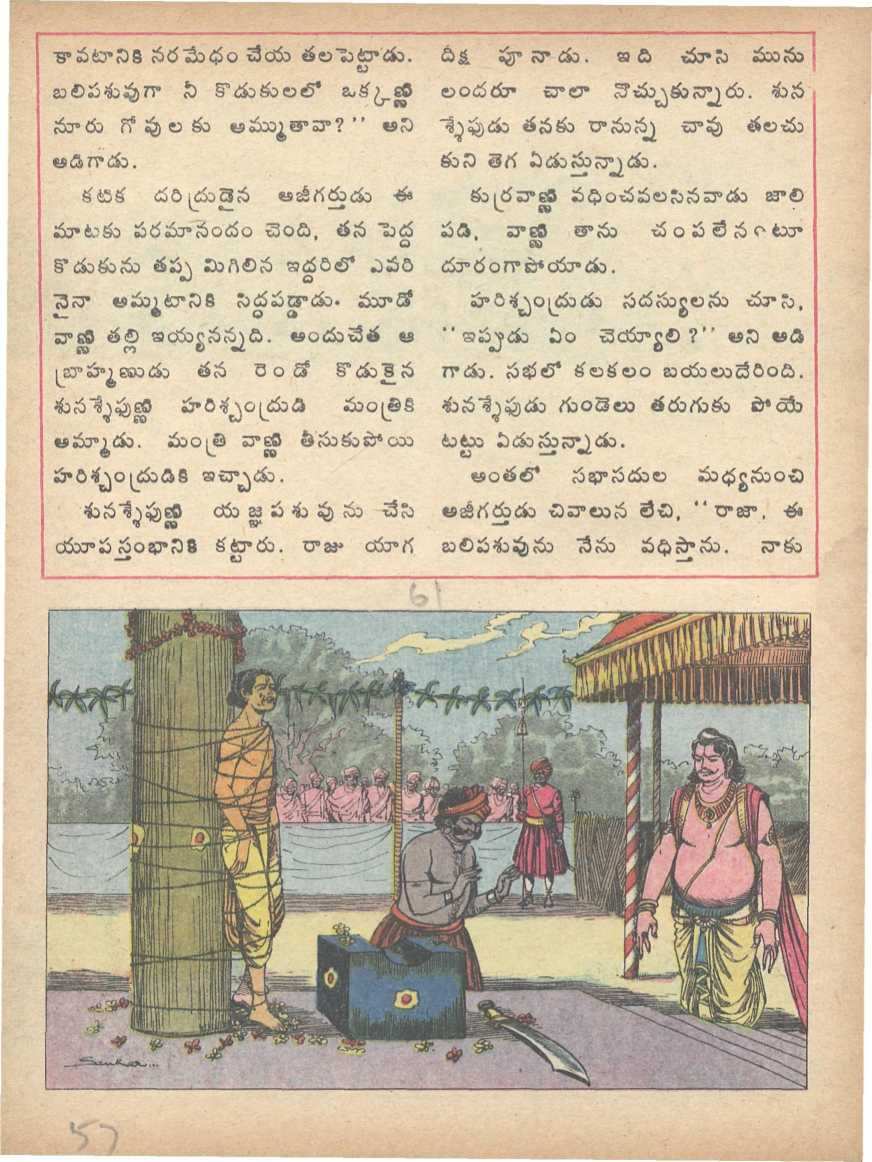 కావటానికి నరమేధం చేయ తలపెట్టాడు.
బలిపశువుగా నీ కొడుకులలో ఒక్కణ్ణి
నూరు గోవులకు అమ్ముతావా?'' అని
అడిగాడు.
కటిక దరిద్రుడైన అజీగర్తుడు ఈ
మాటకు పరమానందం చెంది, తన పెద్ద
కొడుకును తప్ప మిగిలిన ఇద్దరిలో ఎవరి
నైనా అమ్మటానికి సిద్ధపడ్డాడు. మూడో
వాణ్ణి తల్లి ఇయ్యనన్నది. అందుచేత ఆ
బ్రాహ్మణుడు తన రెండో కొడుకైన
శునశ్శేఫుణ్ణి హరిశ్చంద్రుడి మంత్రికి
అమ్మాడు. మంత్రి వాణ్ణి తీసుకుపోయి
హరిశ్చంద్రుడికి ఇచ్చాడు.
శునశ్శేఫుణ్ణి యజ్ఞపశువును చేసి
యూపస్తంభానికి కట్టారు. రాజు యాగ
దీక్ష పూనాడు. ఇది చూసి మును
లందరూ చాలా నొచ్చుకున్నారు. శున
శ్శేఫుడు తనకు రానున్న చావు తలచు
కుని తెగ ఏడుస్తున్నాడు.
కుర్రవాణ్ణి వధించవలసినవాడు జాలి
పడి, వాణ్ణి తాను చంపలేనంటూ
దూరంగాపోయాడు.
హరిశ్చంద్రుడు సదస్యులను చూసి,
''ఇప్పుడు ఏం చెయ్యాలి?'' అని అడి
గాడు. సభలో కలకలం బయలుదేరింది.
శునశ్శేఫుడు గుండెలు తరుగుకు పోయే
టట్టు ఏడుస్తున్నాడు.
అంతలో సభాసదుల మధ్యనుంచి
అజీగర్తుడు చివాలున లేచి, ''రాజా, ఈ
బలిపశువును నేను వధిస్తాను. నాకు
61
Sankar...
57